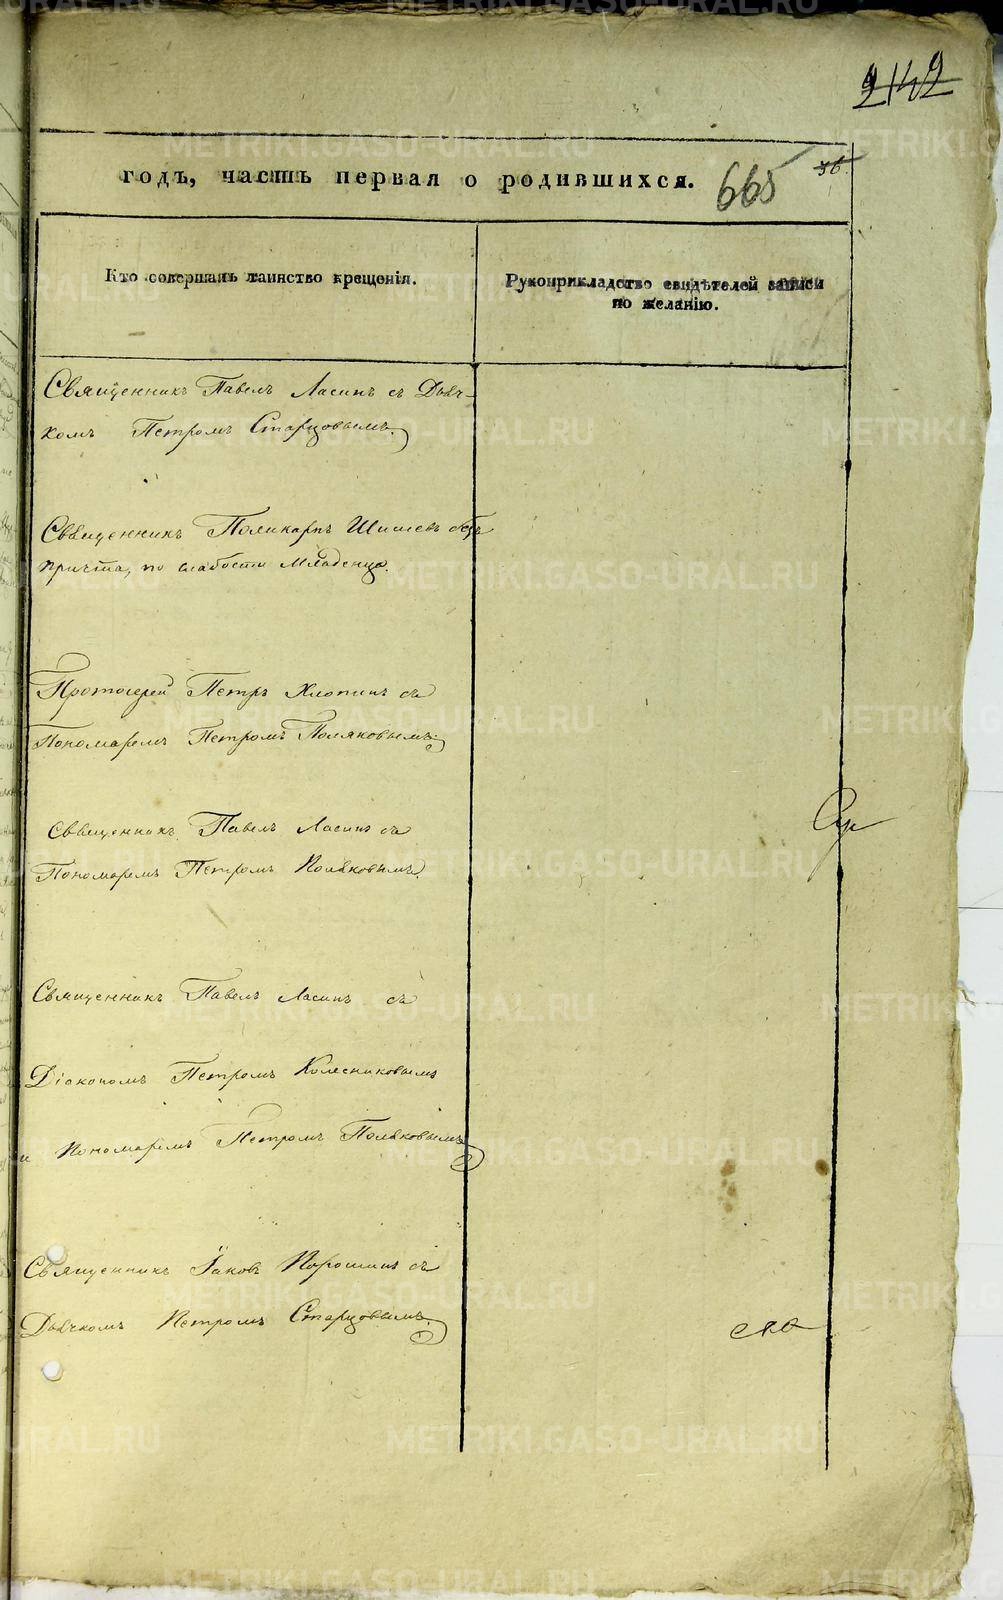 2142
годъ, часть первая о родившихся.
665
36.
Кто совершалъ таинство крещенія.
Рукоприкладство свидѣтелей записи
по желанію.
Священникъ Павелъ Ласинъ съ Дьяч-
комъ Петромъ Старцовымъ.
Священникъ Поликарпъ Шишевъ безъ
причта, по слабости Младенца.
Протоіерей Петръ Хлопинъ съ
Пономаремъ Петромъ Поляковымъ.
Священникъ Павелъ Ласинъ съ
Пономаремъ Петромъ Поляковымъ.
Священникъ Павелъ Ласинъ съ
Діакономъ Петромъ Колесниковымъ
и Пономаремъ Петромъ Поляковымъ
Священникъ Іаковъ Порошинъ съ
Дьячкомъ Петромъ Старцовымъ.
METRIKI.GASO-URAL.RU